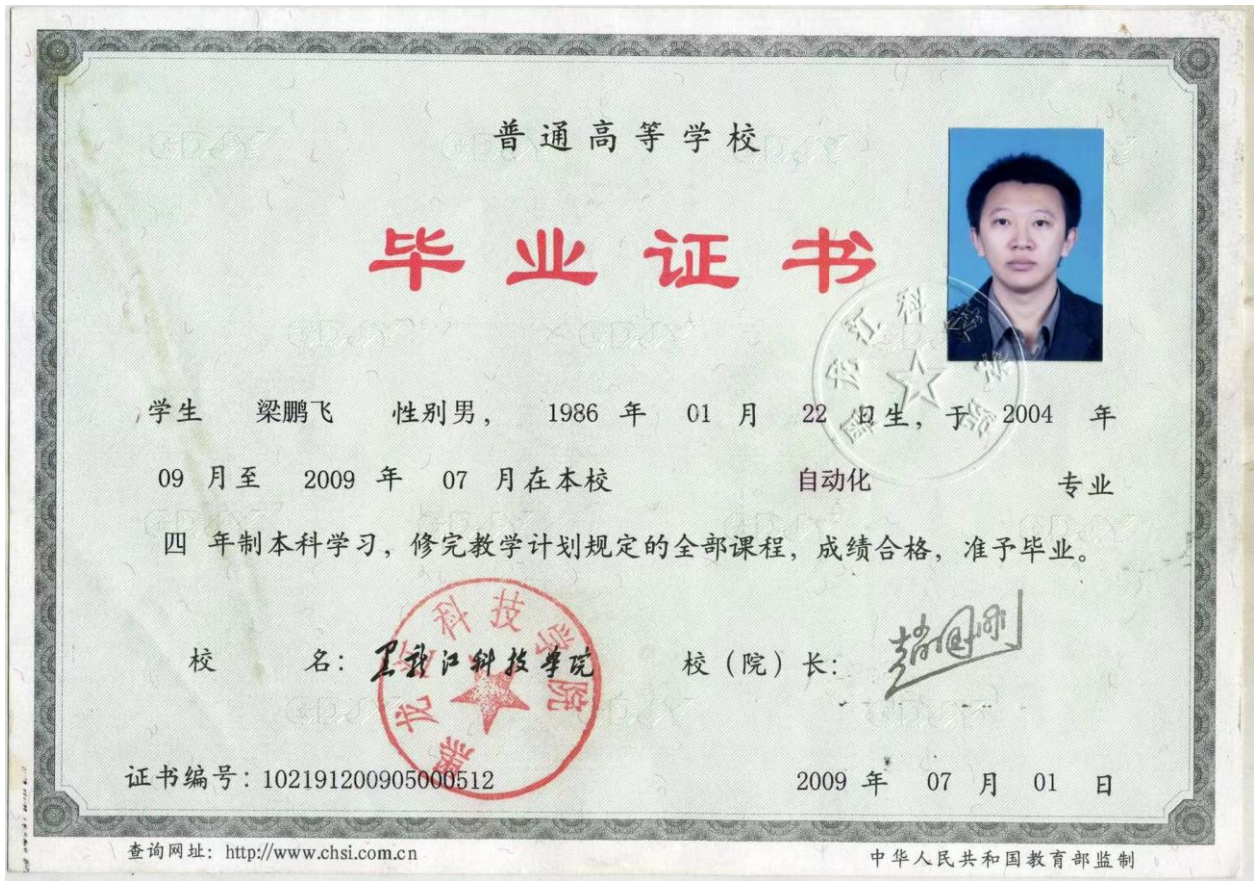 普通高等学校
毕业证书
学生 梁鹏飞 性别男， 1986 年 01 月 22 日生，于 2004 年
09 月至 2009 年 07 月在本校 自动化 专业
四 年制本科学习，修完教学计划规定的全部课程，成绩合格，准予毕业。
校 名：黑龙江科技学院 校（院）长：赵国刚
黑龙江科技学院
黑龙江科技学院
证书编号：102191200905000512 2009 年 07 月 01 日
查询网址：http://www.chsi.com.cn 中华人民共和国教育部监制